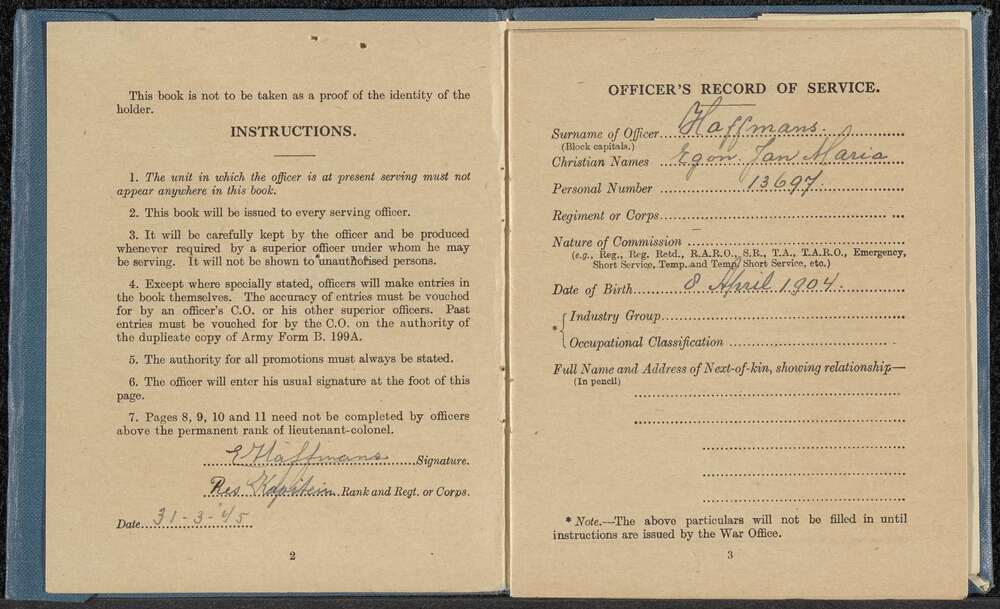 This book is not to be taken as a proof of the identity of the
holder.
INSTRUCTIONS.
1. The unit in which the officer is at present serving must not
appear anywhere in this book.
2. This book will be issued to every serving officer.
3. It will be carefully kept by the officer and be produced
whenever required by a superior officer under whom he may
be serving. It will not be shown to unauthorised persons.
4. Except where specially stated, officers will make entries in
the book themselves. The accuracy of entries must be vouched
for by an officer's C.O. or his other superior officers. Past
entries must be vouched for by the C.O. on the authority of
the duplicate copy of Army Form B. 199A.
5. The authority for all promotions must always be stated.
6. The officer will enter his usual signature at the foot of this
page.
7. Pages 8, 9, 10 and 11 need not be completed by officers
above the permanent rank of lieutenant-colonel.
E Haffmans Signature.
Res Kapitein Rank and Regt. or Corps.
Date 31-3-'45
2
OFFICER'S RECORD OF SERVICE.
Surname of Officer Haffmans.
(Block capitals.)
Christian Names Egon. Jan Maria
Personal Number 13697.
Regiment or Corps
Nature of Commission
(e.g., Reg., Reg. Retd., R.A.R.O., S.R., T.A., T.A.R.O., Emergency,
Short Service, Temp. and Temp. Short Service, etc.)
Date of Birth 8 April 1904.
* Industry Group
Occupational Classification
Full Name and Address of Next-of-kin, showing relationship—
(In pencil)
* Note.—The above particulars will not be filled in until
instructions are issued by the War Office.
3